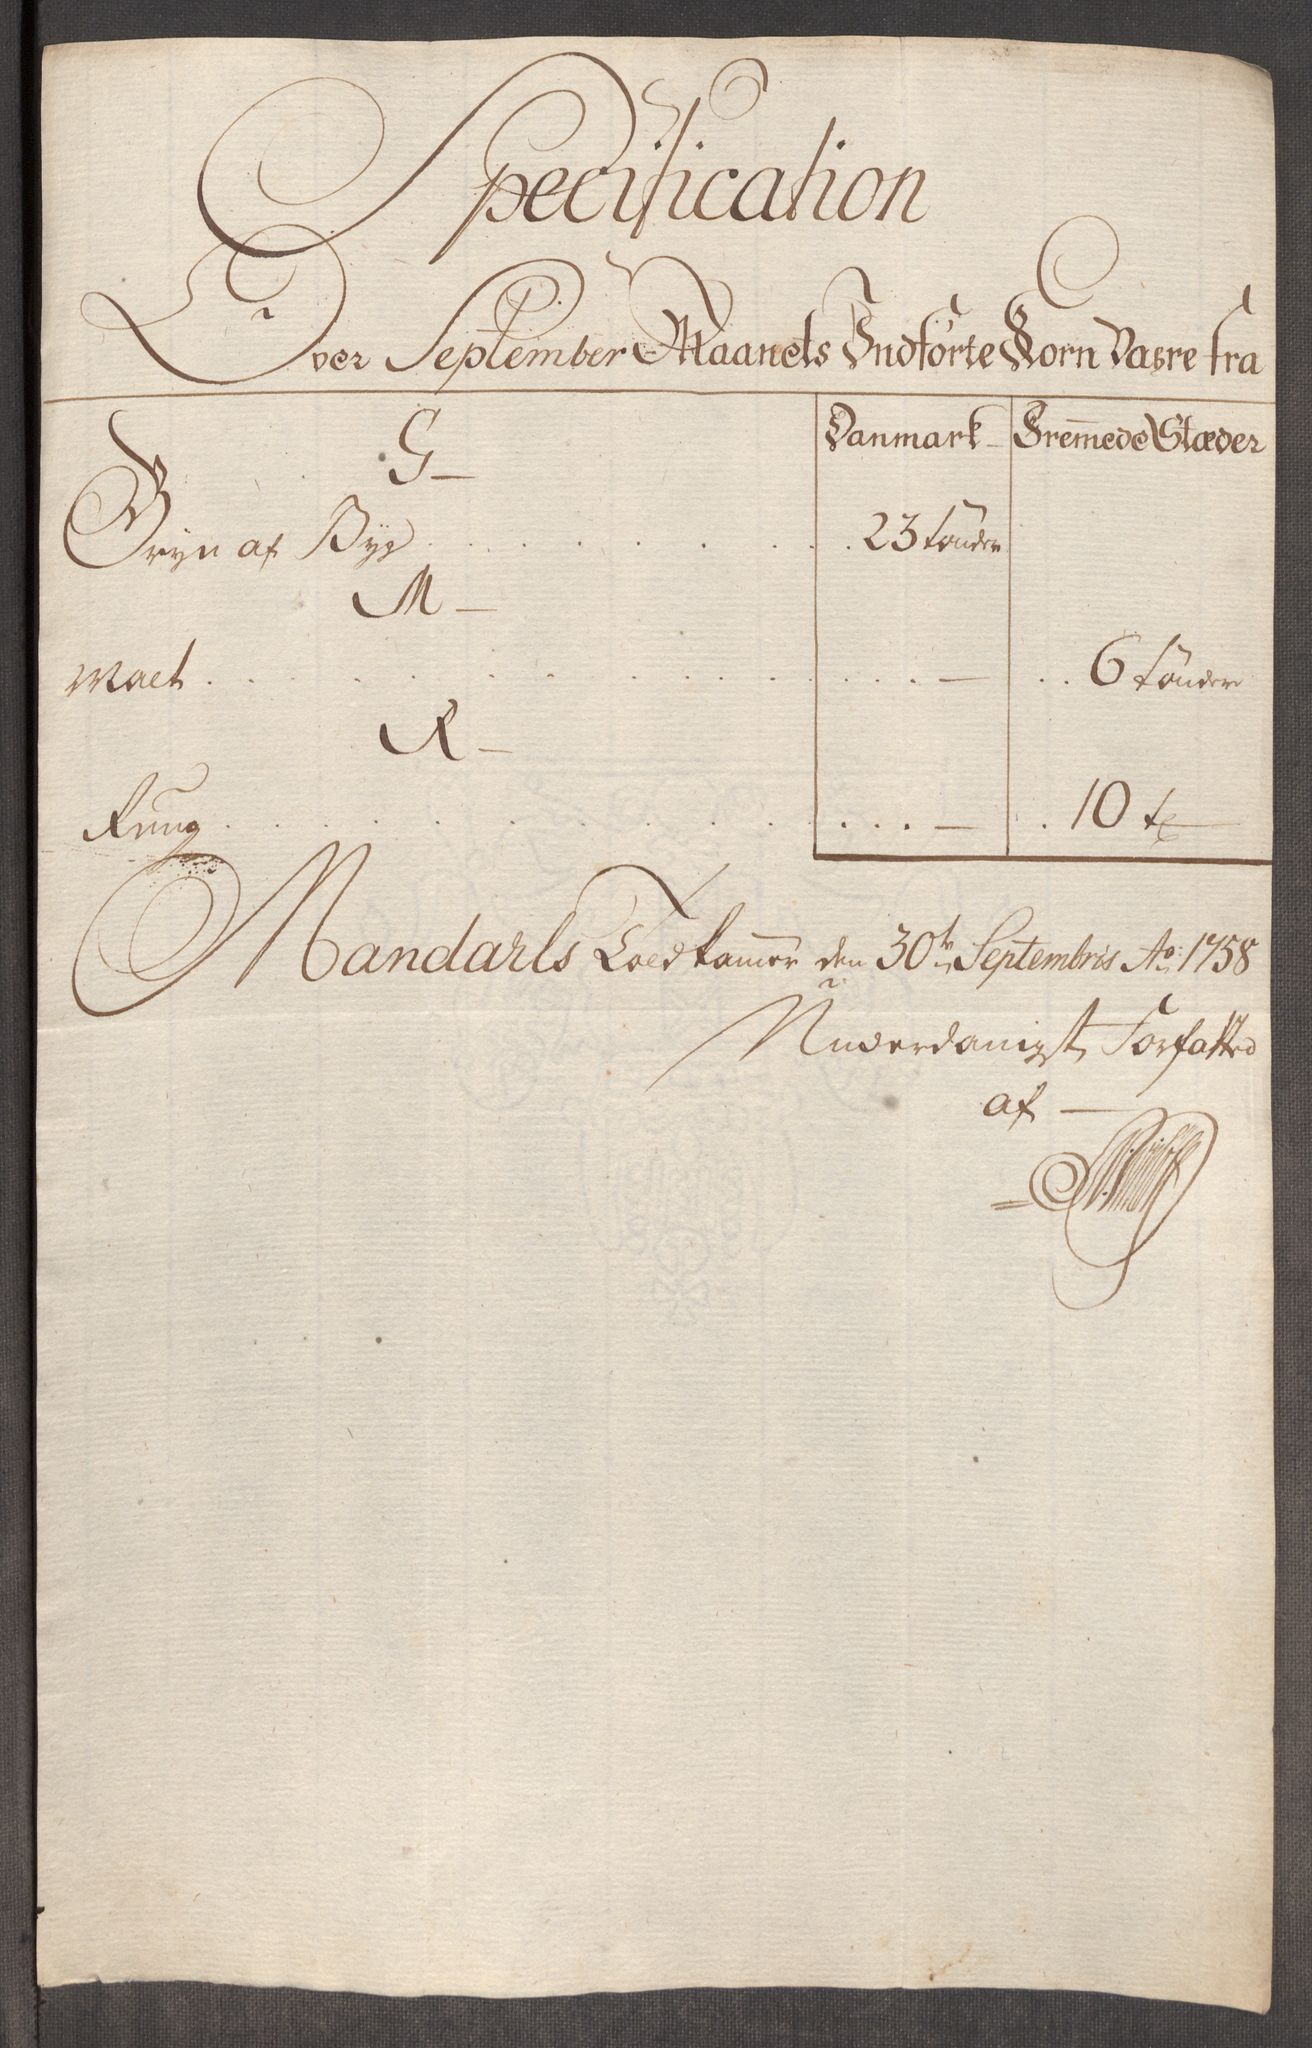 Specification
Over September Maanets Indførte Korn Vahre fra
G – Danmark – Fremmede Stæder
Gryn af Byg . . . . . . . . . 23 tønder
M –
Malt . . . . . . . . . . . . . . – . . 6 tønder
R –
Rung . . . . . . . . . . . . . – . 10 t
Mandahls Toldkammer den 30te Septembris Ao: 1758
Underdanigst Forfatted
af –